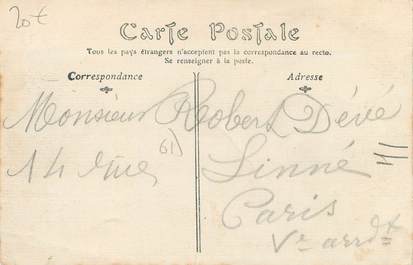 20t
Carte Postale
Tous les pays étrangers n'acceptent pas la correspondance au recto.
Se renseigner à la poste.
Correspondance
Adresse
Monsieur Robert Dévé
14 rue Linné
61)
Paris
Ve arrdt